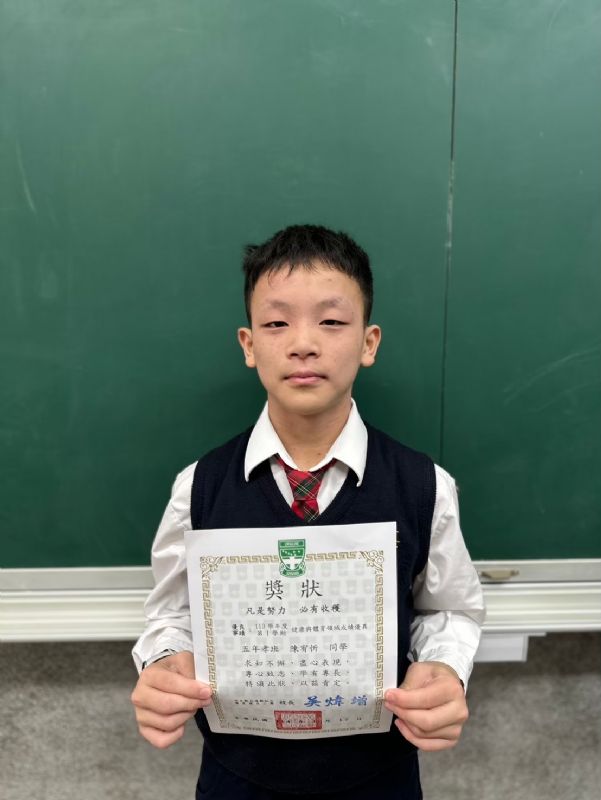 獎狀
凡是努力 必有收穫
優良事蹟 113學年度第1學期 健康與體育領域成績優異
五年孝班 陳宥忻 同學
求知不懈，盡心表現，
專心致志，學有專長，
特頒此狀，以茲肯定。
校長 吳煒增
中華民國